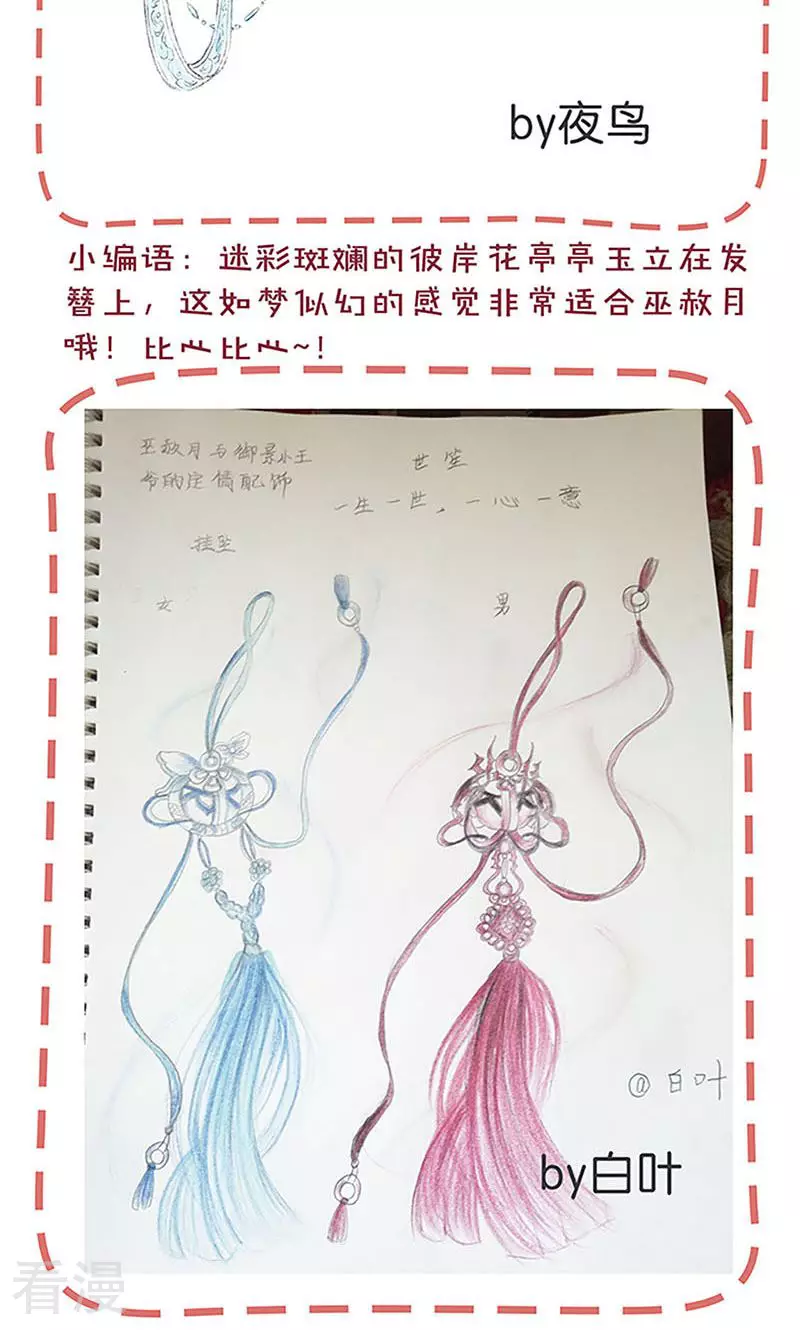 by夜鸟
小编语：迷彩斑斓的彼岸花亭亭玉立在发
簪上，这如梦似幻的感觉非常适合巫赦月
哦！比心比心~！
巫赦月与御景小王
爷的定情配饰
世笙
一生一世，一心一意
挂坠
女
男
@白叶
by白叶
看漫